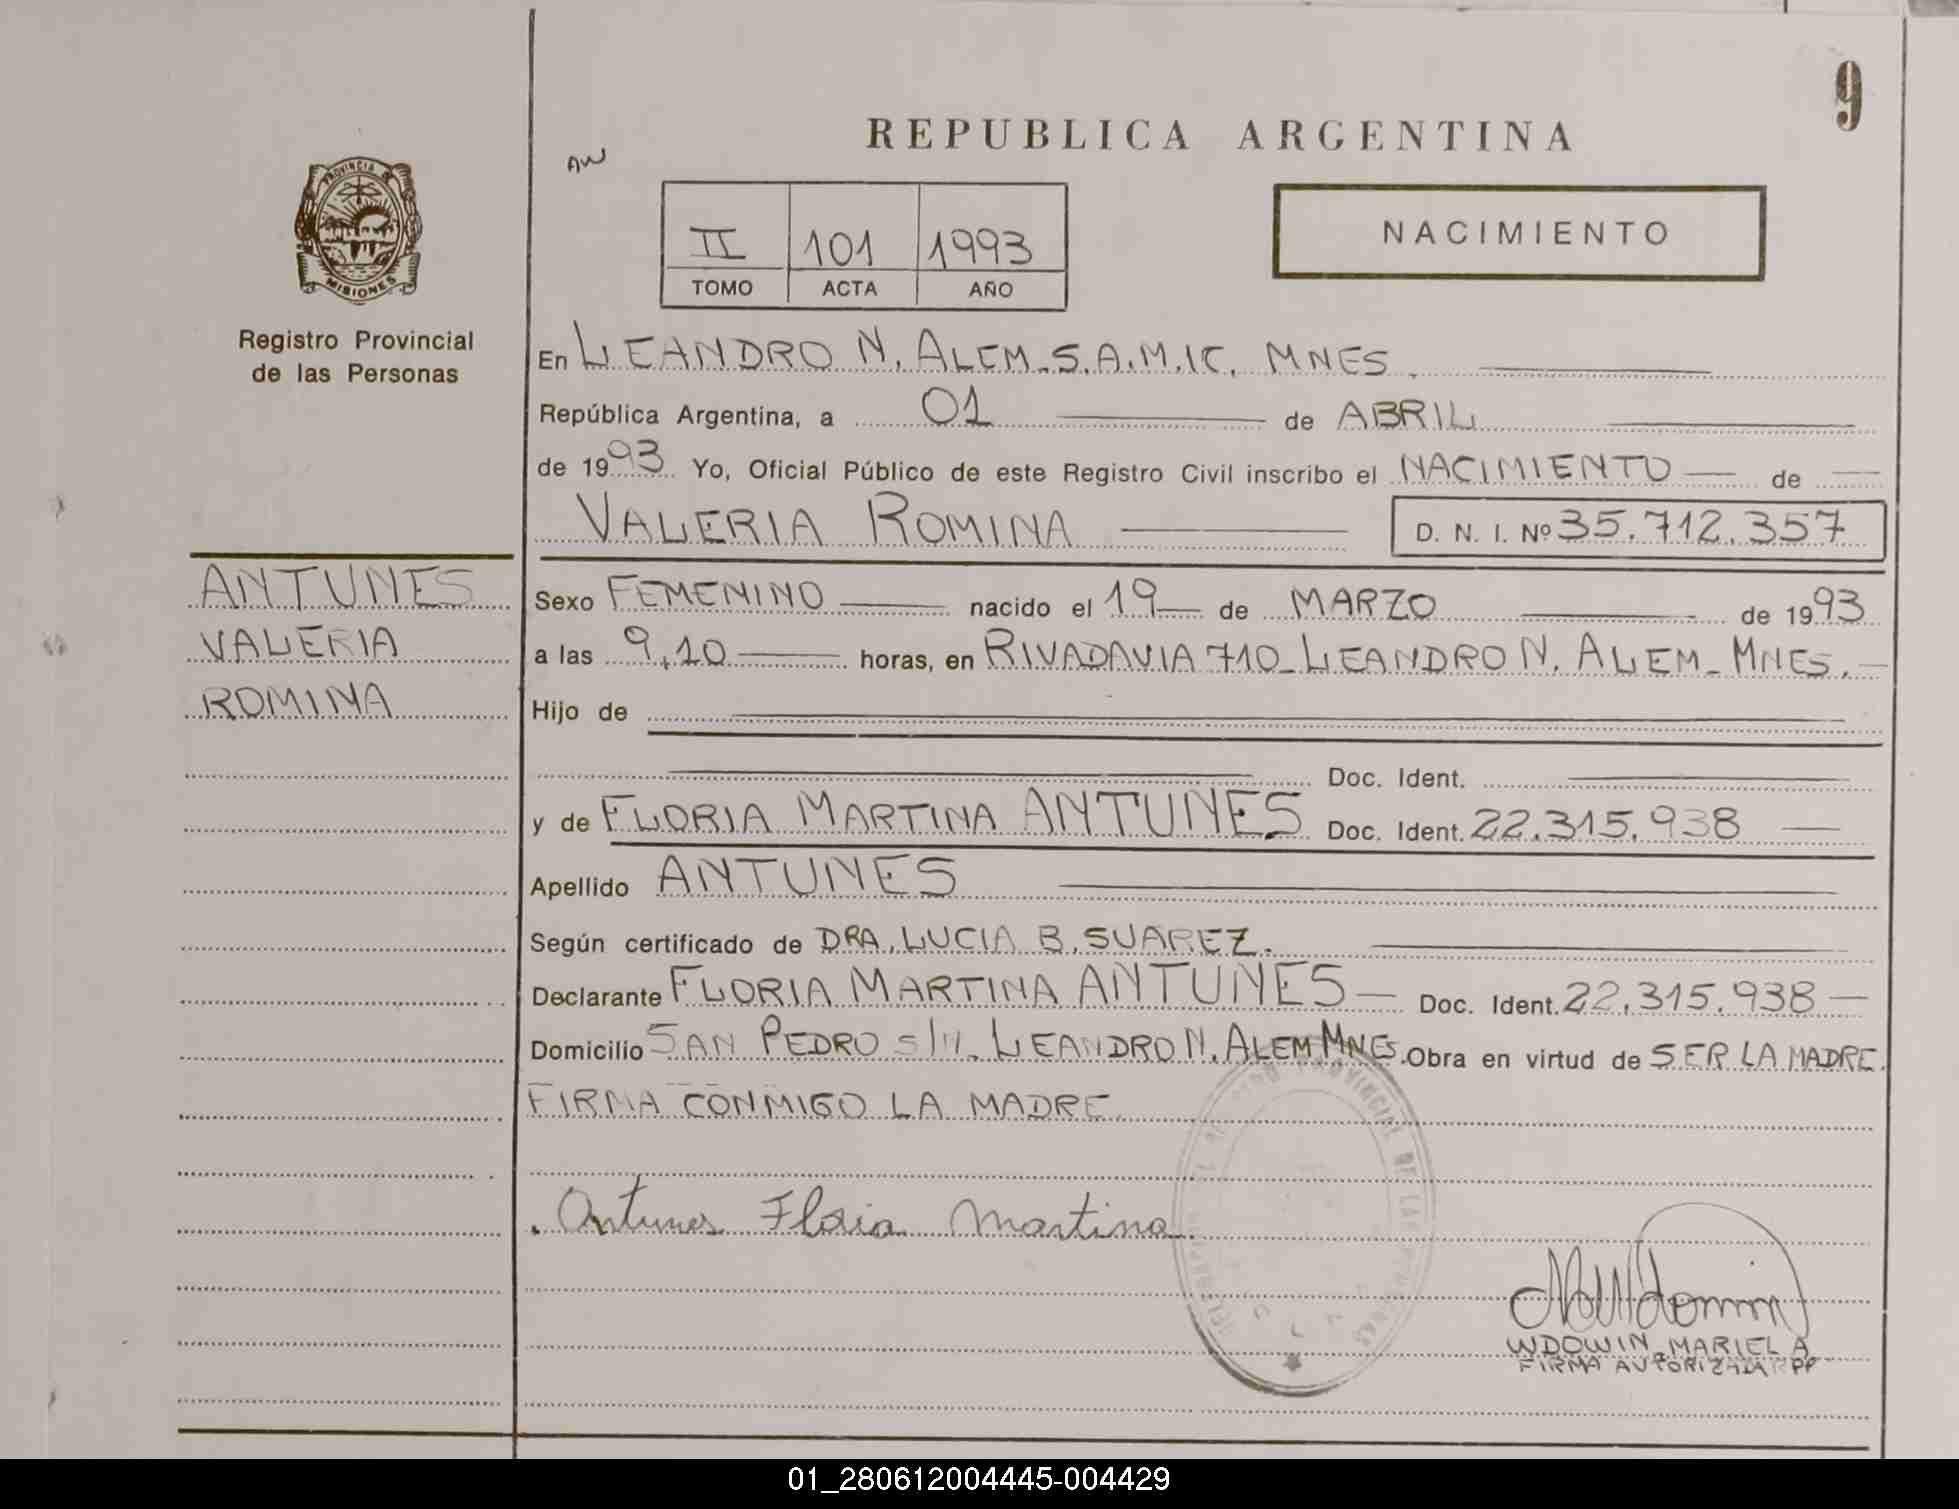 9
REPUBLICA ARGENTINA
AW
PROVINCIA DE
MISIONES
II 101 1993
TOMO ACTA AÑO
NACIMIENTO
Registro Provincial
de las Personas
En LEANDRO N. ALEM.S.A.M.IC. MNES.
República Argentina, a 01 de ABRIL
de 1993 Yo, Oficial Público de este Registro Civil inscribo el NACIMIENTO de
VALERIA ROMINA D. N. I. Nº 35.712.357
ANTUNES
VALERIA
ROMINA
Sexo FEMENINO nacido el 19 de MARZO de 1993
a las 9,10 horas, en RIVADAVIA 710_LEANDRO N. ALEM_MNES.
Hijo de
Doc. Ident.
y de FLORIA MARTINA ANTUNES Doc. Ident. 22.315.938
Apellido ANTUNES
Según certificado de DRA. LUCIA B. SUAREZ.
Declarante FLORIA MARTINA ANTUNES Doc. Ident. 22.315.938
Domicilio SAN PEDRO S/N. LEANDRO N. ALEM MNES. Obra en virtud de SER LA MADRE.
FIRMA CONMIGO LA MADRE.
Antunes Floria Martina
WDOWIN, MARIEL A
FIRMA AUTORIZADA RPP
01_280612004445-004429